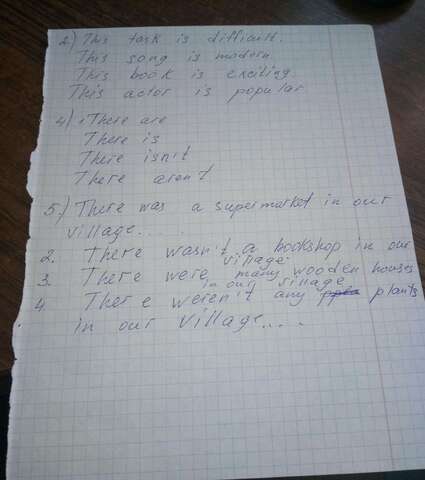 2.) This task is difficult.
This song is modern.
This book is exciting.
This actor is popular.
4) 1 There are
There is
There isn't
There aren't
5.) There was a supermarket in our
village.....
2. There wasn't a bookshop in our
village.
3. There were many wooden houses
in our village
4. There weren't any plants
in our village....